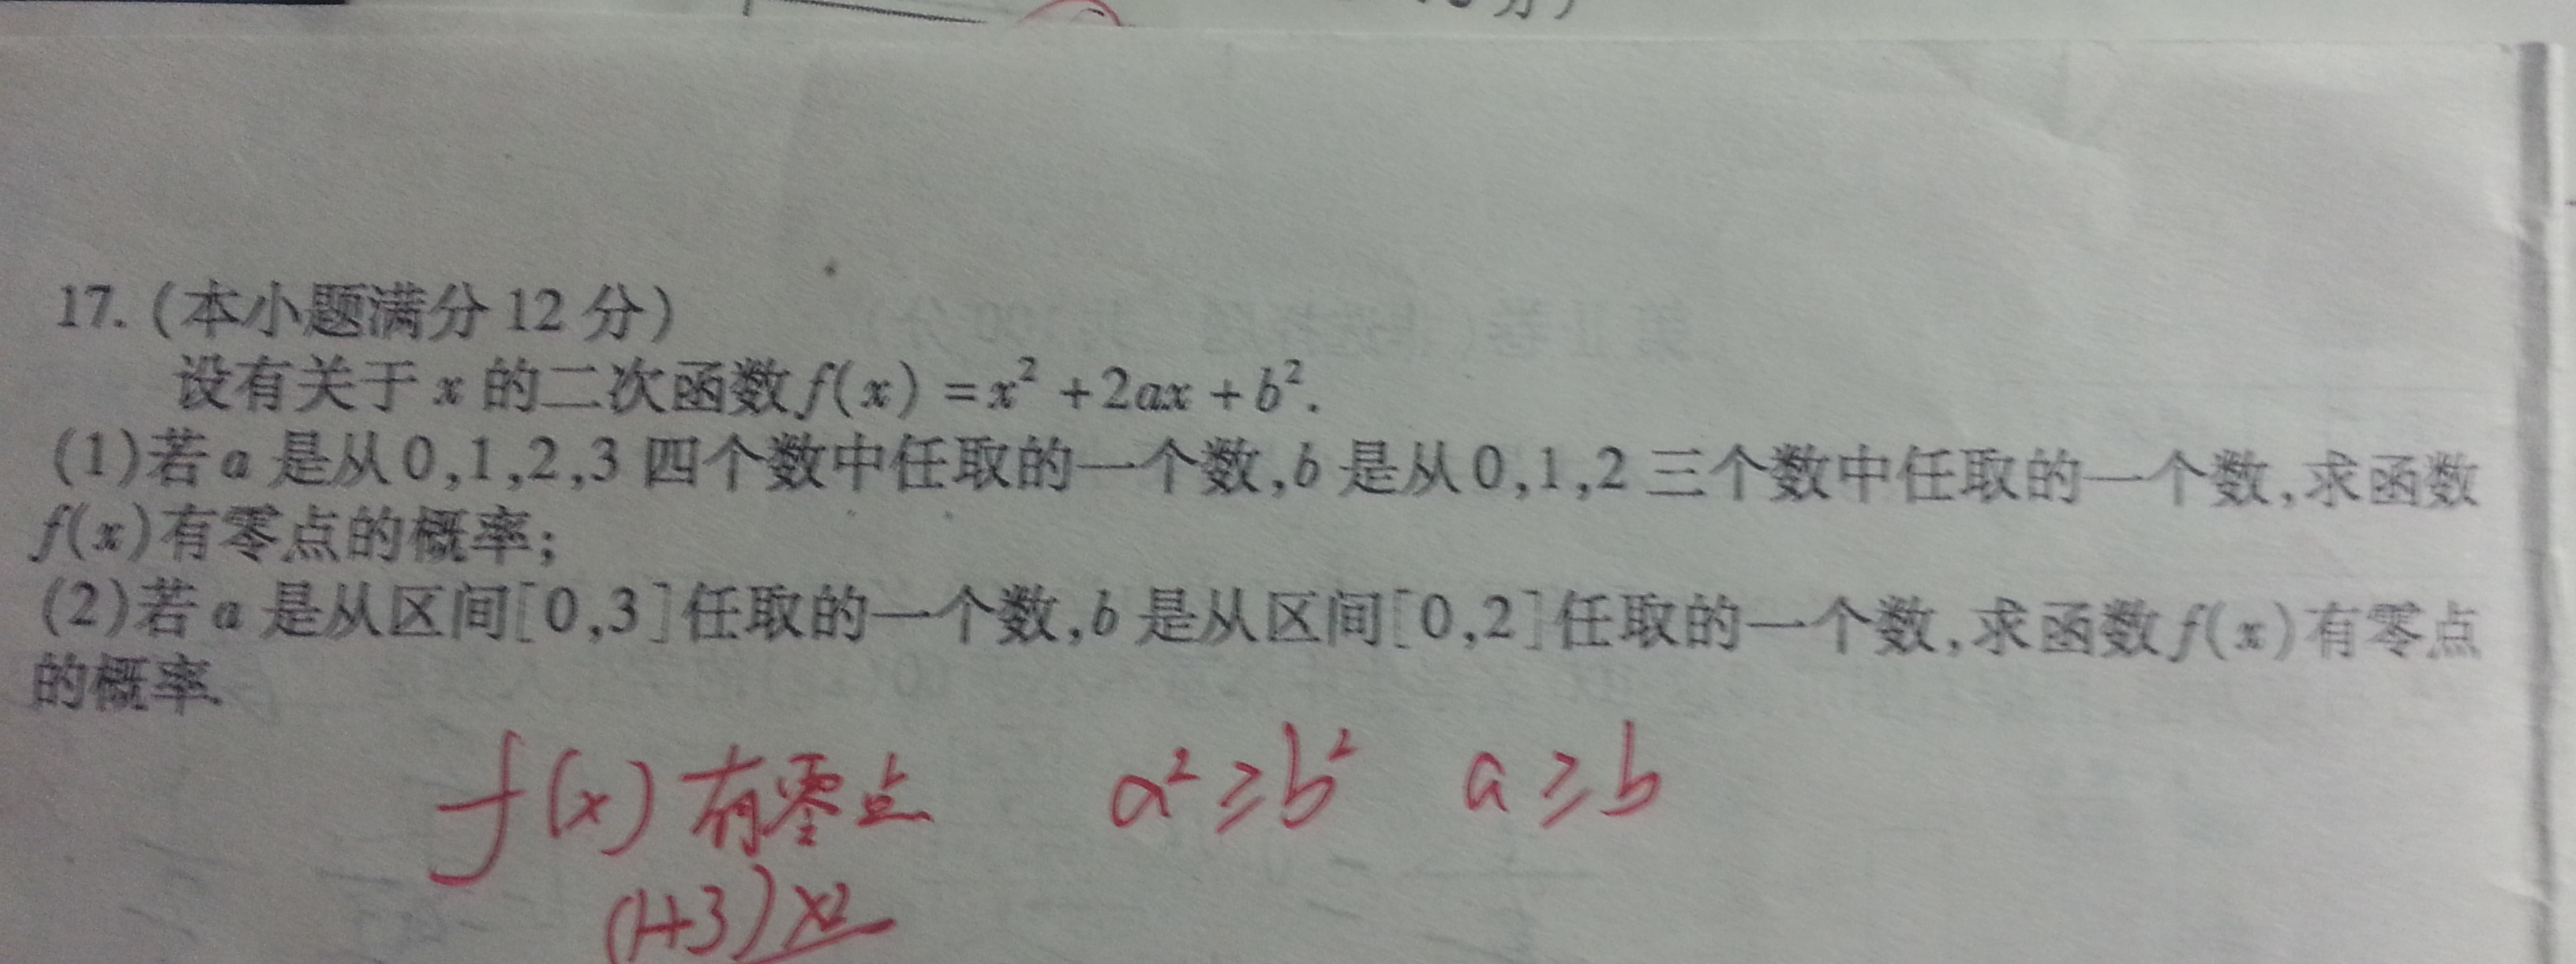 分)
17. (本小题满分 12 分)
设有关于 x 的二次函数 f(x) = x² + 2ax + b².
(1)若 a 是从 0,1,2,3 四个数中任取的一个数,b 是从 0,1,2 三个数中任取的一个数,求函数
f(x)有零点的概率;
(2)若 a 是从区间[0,3]任取的一个数,b 是从区间[0,2]任取的一个数,求函数 f(x)有零点
的概率.
f(x) 有零点 a² ≥ b² a ≥ b
(1+3)×2